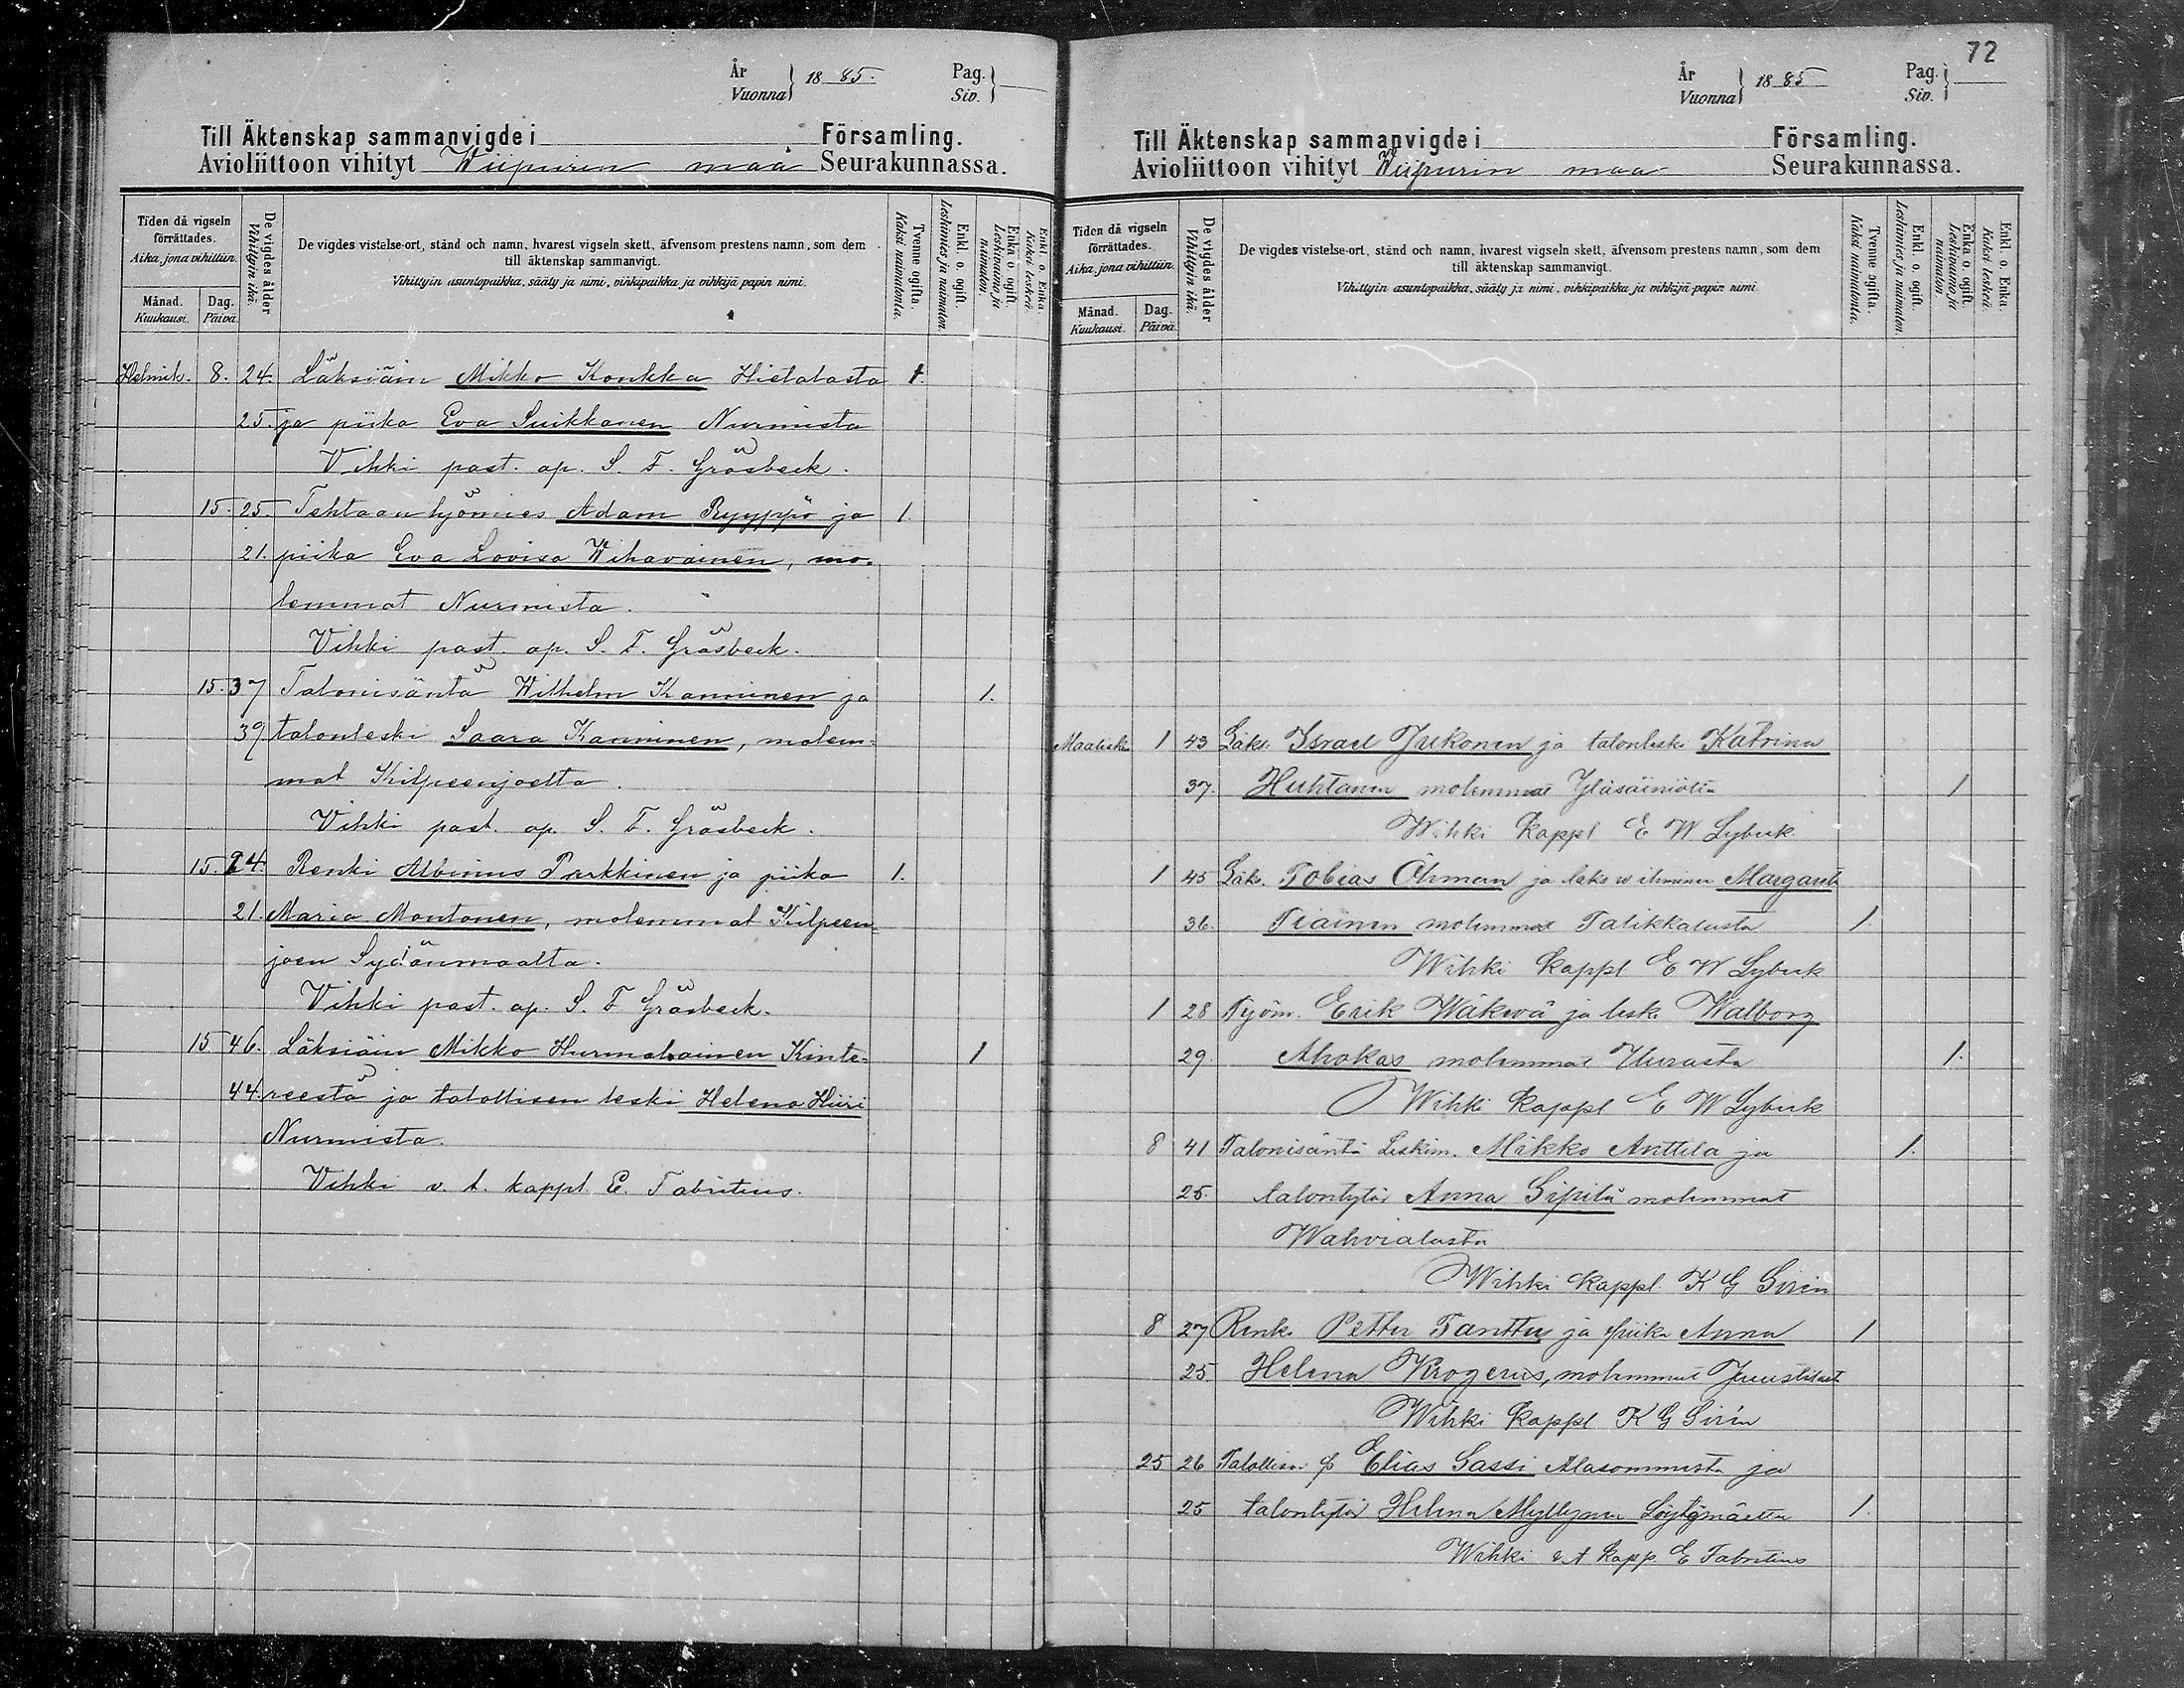 År
Vuonna } 1885.
Pag.
Siv. }
Till Äktenskap sammanvigde i Församling.
Avioliittoon vihityt Wiipurin maa Seurakunnassa.
Tiden då vigseln förrättades.
Aika, jona vihittiin.
Månad.
Kuukausi.
Dag.
Päivä.
De vigdes ålder
Vihittyin ikä.
De vigdes vistelse-ort, stånd och namn, hvarest vigseln skett, äfvensom prestens namn, som dem
till äktenskap sammanvigt.
Vihittyin asuntopaikka, sääty ja nimi, vihkipaikka ja vihkijä papin nimi.
Tvenne ogifta.
Kaksi naimatonta.
Enkl. o. ogift.
Leskimies ja naimaton.
Enka o. ogift.
Leskivaimo ja naimaton.
Enkl. o. Enka.
Kaksi leskeä.
Helmik. 8. 24. Läksiäin Mikko Konkka Hietalasta 1.
25. ja piika Eva Suikkanen Nurmista
Vihki past. ap. S. F. Gräsbeck.
15. 25. Tehtaantyömies Adam Ryyppö ja 1.
21. piika Eva Lovisa Wihavainen, mo-
lemmat Nurmista.
Vihki past. ap. S. F. Gräsbeck.
15. 37 Talonisäntä Wilhelm Kanninen ja 1.
39 talonleski Saara Kanninen, molem-
mat Kilpeenjoelta.
Vihki past. ap. S. F. Gräsbeck.
15. 24. Renki Albinus Parkkinen ja piika 1.
21. Maria Montonen, molemmat Kilpeen-
joen Sydänmaalta.
Vihki past. ap. S. F. Gräsbeck.
15 46. Läksiäin Mikko Hurmalainen Kinte- 1
44. reestä ja talollisen leski Helena Hiiri
Nurmista.
Vihki v. t. kappl. E. Fabritius.
72
År
Vuonna } 1885
Pag.
Siv. }
Till Äktenskap sammanvigde i Församling.
Avioliittoon vihityt Wiipurin maa Seurakunnassa.
Tiden då vigseln förrättades.
Aika, jona vihittiin.
Månad.
Kuukausi.
Dag.
Päivä.
De vigdes ålder
Vihittyin ikä.
De vigdes vistelse-ort, stånd och namn, hvarest vigseln skett, äfvensom prestens namn, som dem
till äktenskap sammanvigt.
Vihittyin asuntopaikka, sääty ja nimi, vihkipaikka ja vihkijä papin nimi
Tvenne ogifta.
Kaksi naimatonta.
Enkl. o. ogift.
Leskimies ja naimaton.
Enka o. ogift.
Leskivaimo ja naimaton.
Enkl. o. Enka.
Kaksi leskeä.
1 43 Läks. Israel Jukonen ja talonleski Katrina
37. Huhtanen molemmat Yläsäiniöltä 1
Wihki kappl E W Lybeck
1 45 Läks. Tobias Öhman ja Margareta
36. Tiainen molemmat Talikkalasta 1.
Wihki kappl. E W Lybeck
1 28 Työm. Erik Wäkevä ja lesk. Walborg
29. Ahokas molemmat 1.
Wihki kappl E W Lybeck
8 41 Talonisäntä Leskim. Mikko Anttila ja 1.
25. talontytär Anna Sipilä molemmat
Wahvialasta
Wihki kappl. K G Sirén
8 27 Renk. Petter Tanttu ja piika Anna 1
25. Helena Krogerus, molemmat Juustilast
Wihki kappl K G Sirén
25 26 Talollisen p Elias Sassi Alasommesta ja
25 talontytär Helena Myllynen Löytömäeltä 1.
Wihki v t kapp. E Fabritius